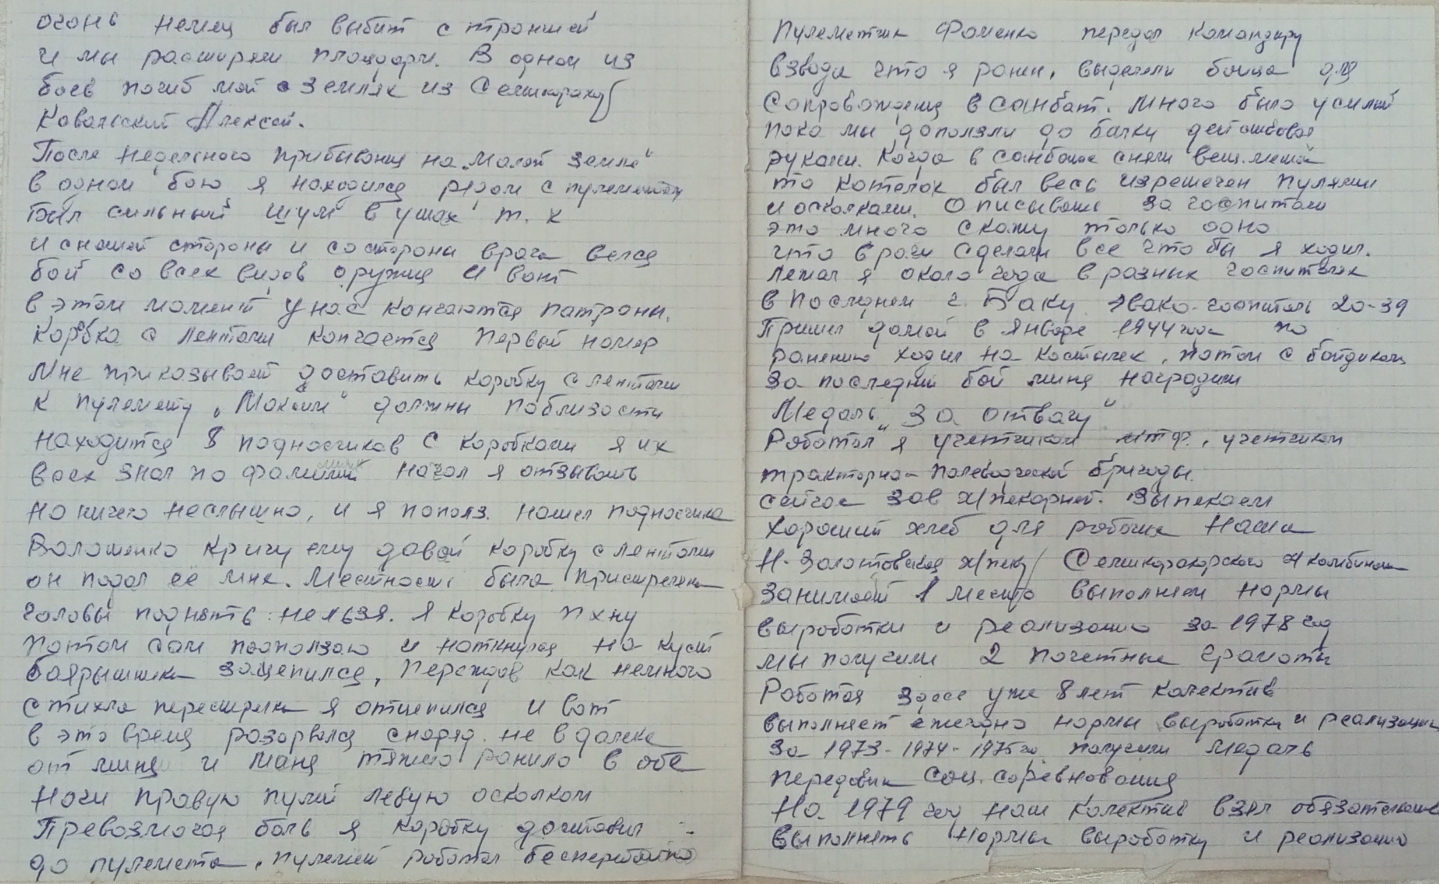 огонь немец был выбит с траншей
и мы расширяли площади. В одном из
боев погиб мой земляк из Семикаракор
Ковальский Алексей.
После недельного прибывания на „Малой земле"
в одном бою я находился рядом с пулеметом
был сильный шум в ушах т. к
и снашей стороны и со стороны врага велся
бой со всех видов оружия и вот
в этом момент у нас кончаются патроны.
Коробка с лентами кончается первый номер
Мне приказывает доставить коробку с лентами
к пулемету „Максим" должны поблизости
находится 8 подносчиков с коробками я их
всех знал по фамилии начал я отзывать
но ничего неслышно, и я пополз. нашел подносчика
Волошенко кричу ему давай коробку с лентами
он подал её мне. Местность была пристреляна
головы поднять нельзя. Я коробку пхну
потом сам подползаю и наткнулся на куст
баярышника зацепился, Переждав как немного
стихла перестрелка я отцепился и вот
в это время разорвался снаряд не вдалеке
от миня и маня тяжело ранило в обе
ноги правую пулей левую осколком
Превозмогая боль я коробку доставил
до пулемета, пулемет работал бесперебойно
Пулеметчик Фоменко передал командиру
взвода что я ранен, выделили бойца для
сопровождения в санбат. Много было усилий
пока мы доползли до балки действовал
руками. Когда в санбате сняли вещ.мешок
то котелок был весь изрешечен пулями
и осколками. Описывать за госпитали
это много скажу только одно
что врачи сделали все что бы я ходил.
Лежал я около года в разных госпиталях
в последнем г. Баку Эвако-госпиталь 20-39
Пришел домой в январе 1944 года по
ранению ходил на костылях, потом с бойдиком
за последний бой миня наградили
Медаль „За отвагу"
Работал я учетчиком мтф, учетчиком
тракторно полеводческой бригады.
сейчас зав х/пекарней. Выпекаем
хороший хлеб для рабочих Наша
Н-Золотовская х/пек/ Семикаракорского х комбината
занимает 1 место выполняем нормы
выработки и реализацию за 1978 год
мы получили 2 почетные грамоты
Работая здесь уже 8 лет колектив
выполняет ежегодно нормы выработки и реализации
За 1973-1974-1975 г. получили медаль
передовик соц. соревнования
На 1979 год наш колектив взял обязательства
выполнять нормы выработку и реализацию